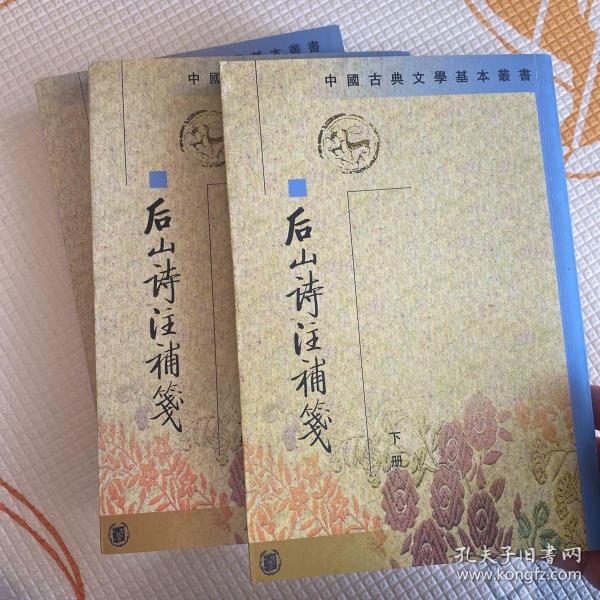 基本叢書
中國
后山诗注補箋
中國古典文學基本叢書
后山诗注補箋
下册
孔夫子旧書网
www.kongfz.com